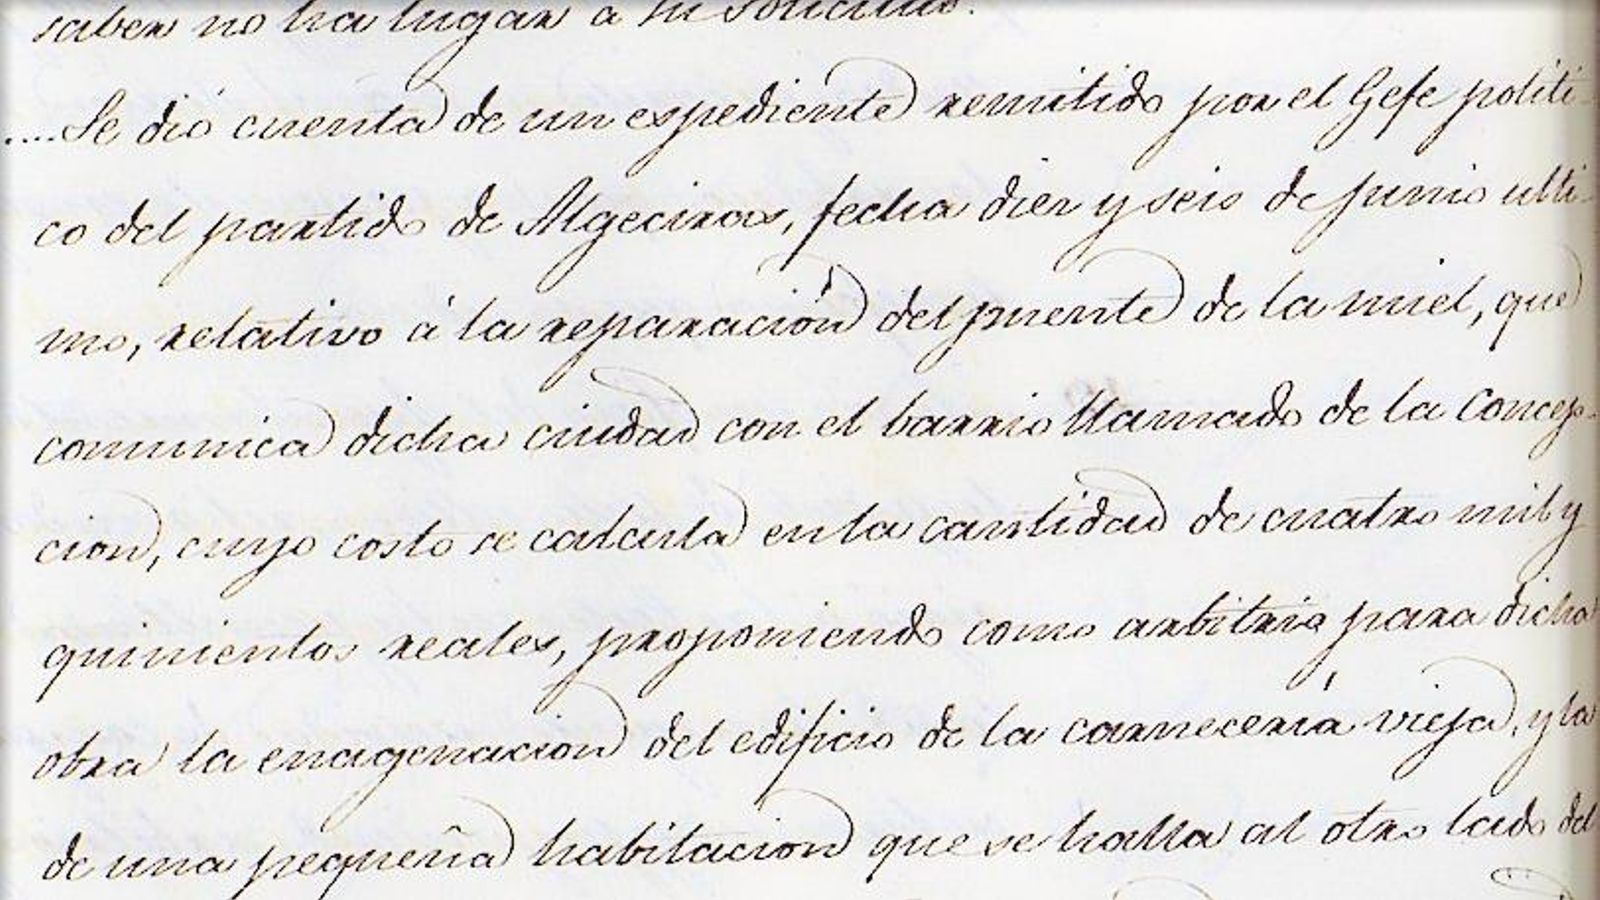 saber no ha lugar a su solicitud.
....Se dió cuenta de un espediente remitido por el Gefe politi-
co del partido de Algeciras, fecha diez y seis de junio ulti-
mo, relativo á la reparación del puente de la miel, que
comunica dicha ciudad con el barrio llamado de la Concep-
cion, cuyo costo se calcula en la cantidad de cuatro mil y
quinientos reales, proponiendo como arbitrio para dicha
obra la enagenacion del edificio de la carneceria vieja, y la
de una pequeña habitacion que se halla al otro lado del